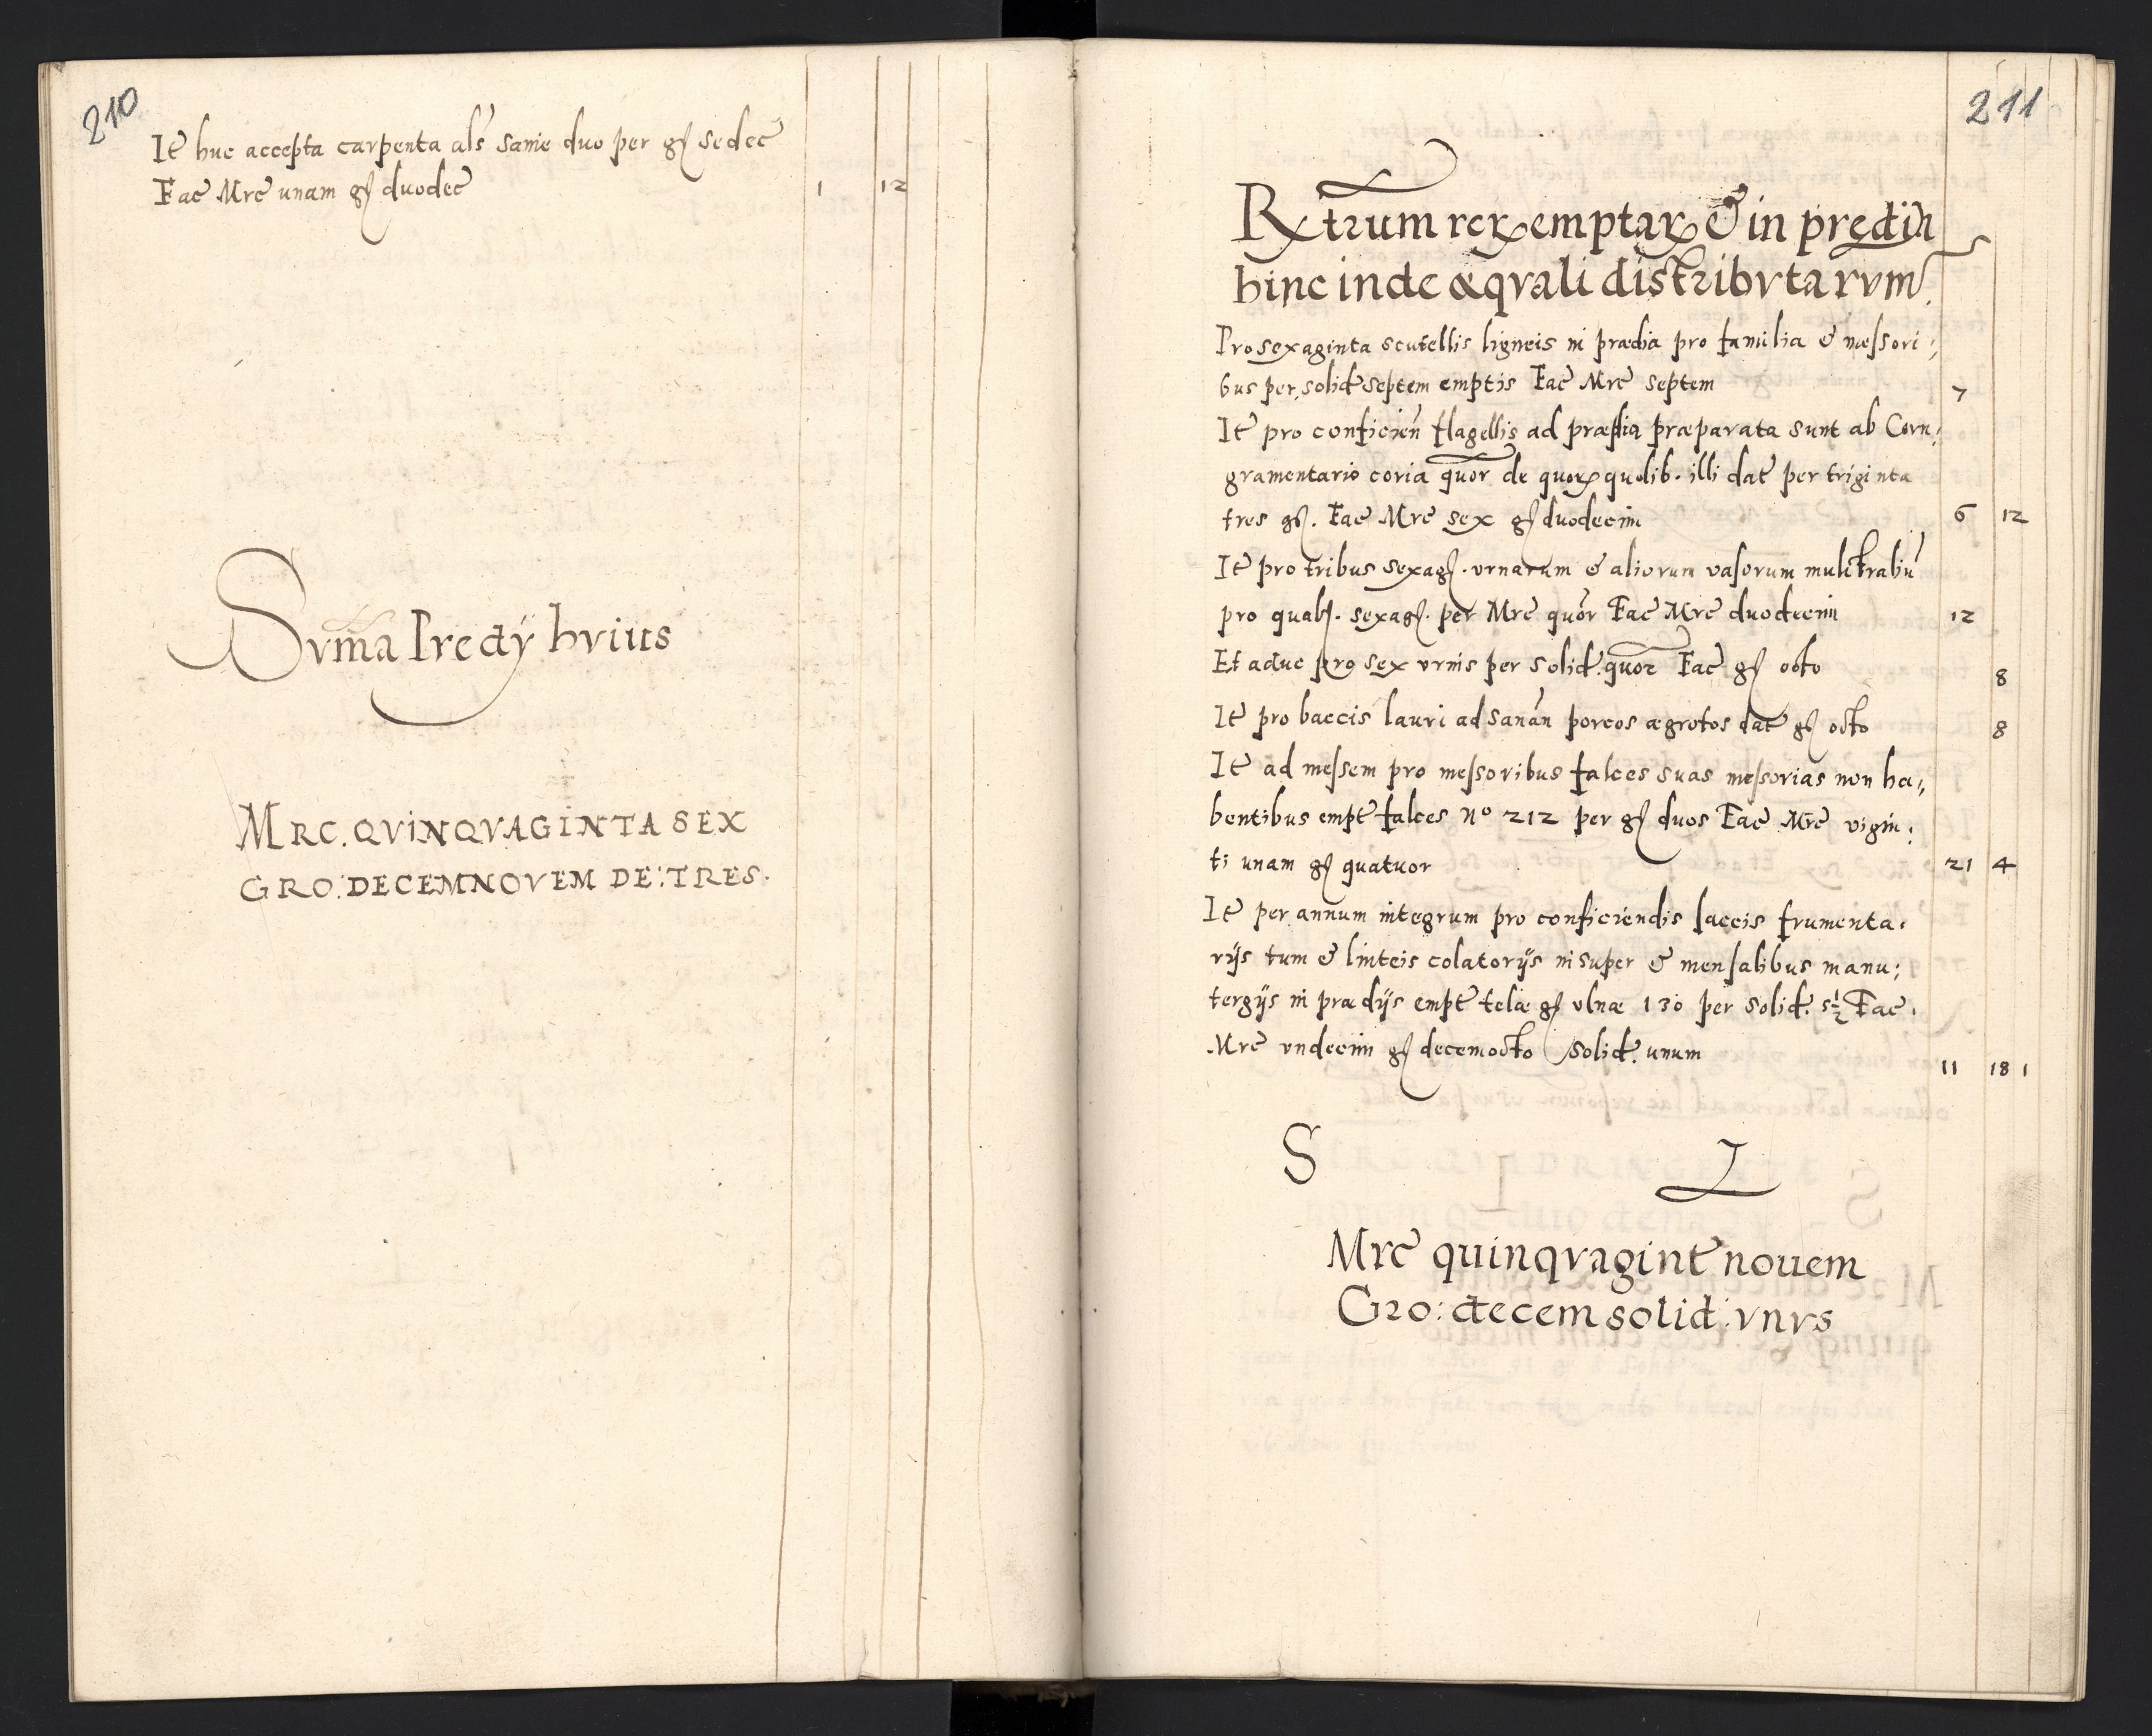 210
Ite huc accepta carpenta als sanie duo per gs sedec
Fac Mrc unam gs duodec 1 12
Svma Predÿ hvius
MRC. QVINQVAGINTA SEX
GRO: DECEMNOVEM DE: TRES.
211
Rx trum rerx emptarx & in prędiis
hinc inde æqvali distribvtarvm.
Pro sexaginta scutellis ligneis in prædia pro familia & messori,,
bus per solid septem emptis Fac Mrc septem 7
Ite pro conficien flagellis ad prædia præparata sunt ab Corn,,
gramentario coria quor de quorx quolib. illi dat per triginta
tres gs. Fac Mrc sex gs duodecim 6 12
Ite pro tribus sexags. vrnarum & aliorum vasorum mulctraliu
pro qualb. sexags. per Mrc quor Fac Mrc duodecim 12
Et aduc pro sex vrnis per solid. quor Fac gs octo 8
Ite pro baccis lauri ad sanan porcos ægrotos dat gs octo 8
Ite ad messem pro messoribus falces suas messorias non ha,,
bentibus empt falces No 212 per gs duos Fac Mrc vigin:
ti unam gs quatuor 21 4
Ite per annum integrum pro conficiendis saccis frumenta.
rÿs tum & linteis colatorÿs insuper & mensalibus manu:
tergÿs in prædÿs empt telæ gs vlnæ 130 per solid. 5½ Fac.
Mrc vndecim gs decemocto solid. unum 11 18 1
S L
Mrc quinqvagint nouem
Gro: decem solid: vnvs